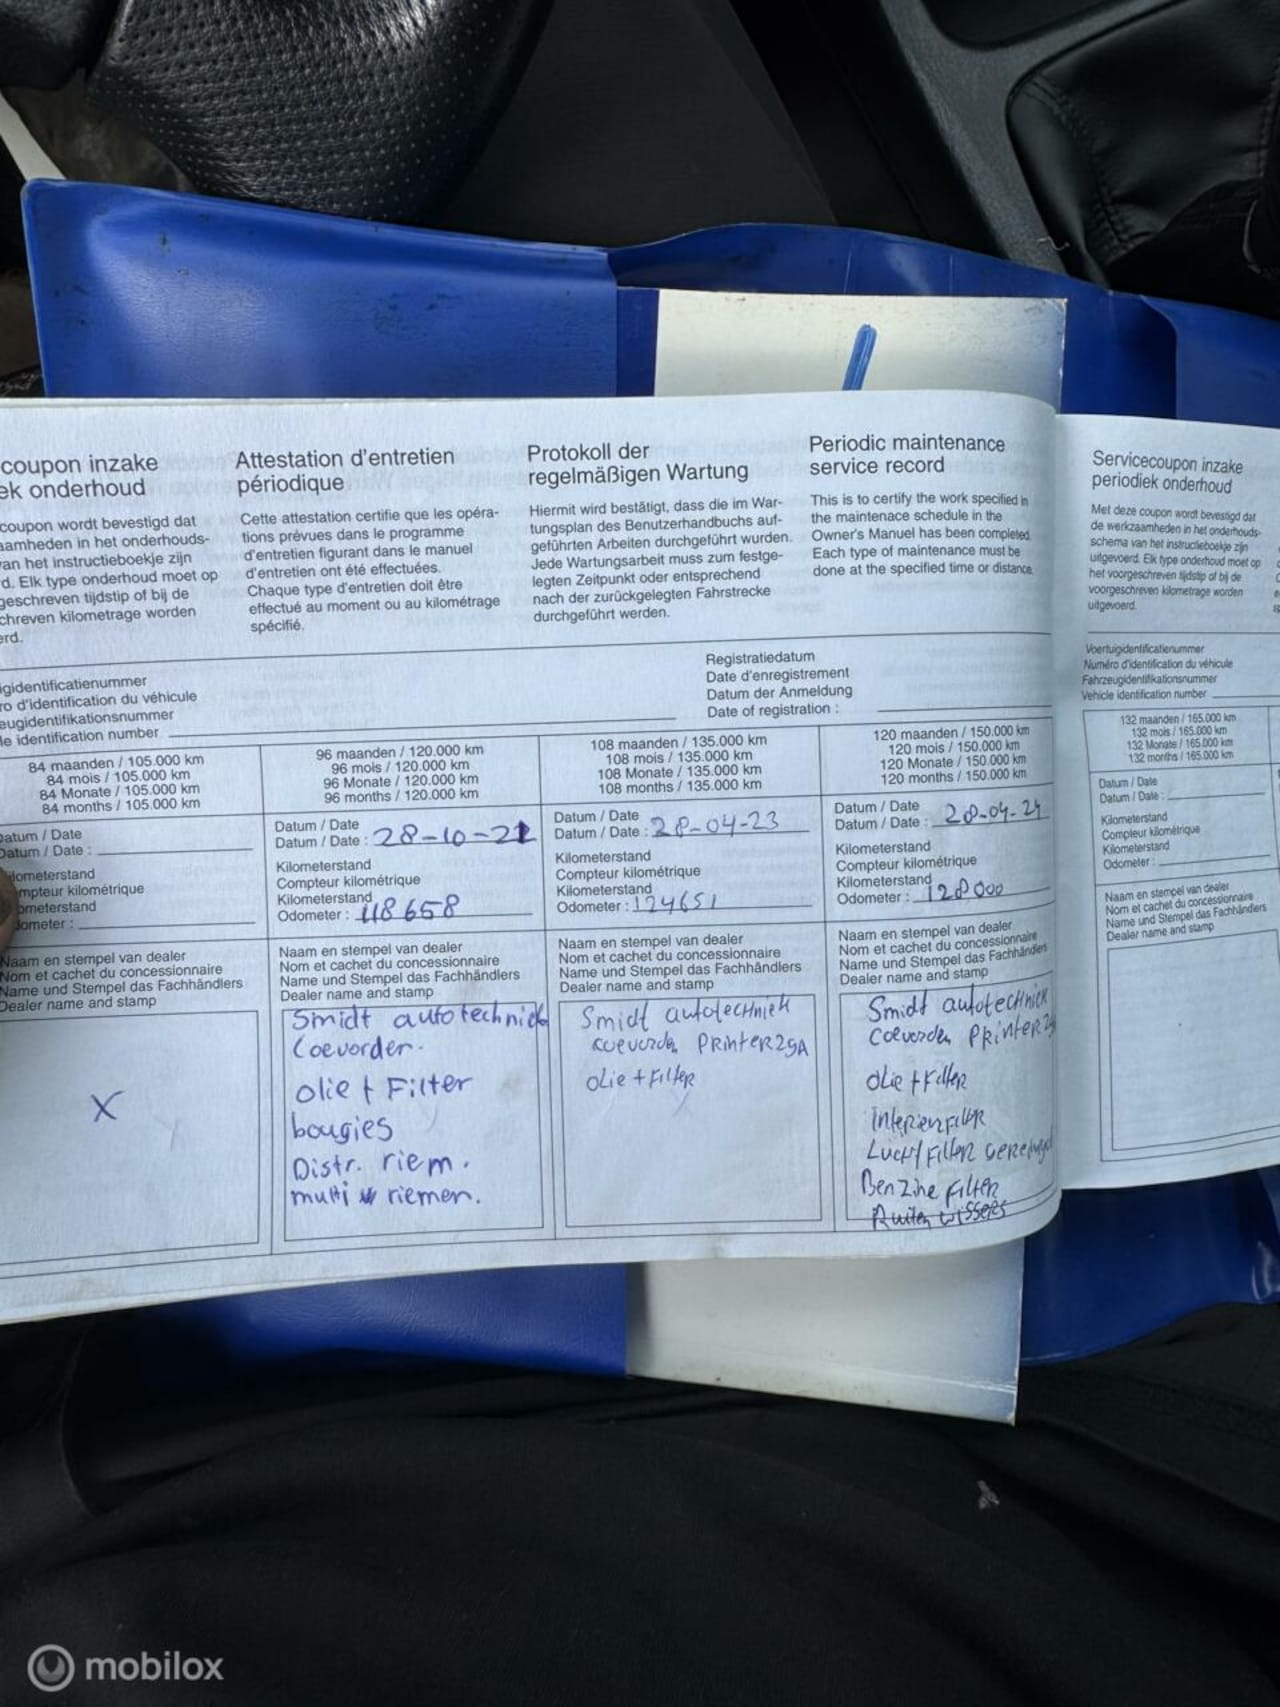 coupon inzake
ek onderhoud
coupon wordt bevestigd dat
aamheden in het onderhouds-
van het instructieboekje zijn
rd. Elk type onderhoud moet op
geschreven tijdstip of bij de
chreven kilometrage worden
erd.
Attestation d'entretien
périodique
Cette attestation certifie que les opéra-
tions prévues dans le programme
d'entretien figurant dans le manuel
d'entretien ont été effectuées.
Chaque type d'entretien doit être
effectué au moment ou au kilométrage
spécifié.
Protokoll der
regelmäßigen Wartung
Hiermit wird bestätigt, dass die im War-
tungsplan des Benutzerhandbuchs auf-
geführten Arbeiten durchgeführt wurden.
Jede Wartungsarbeit muss zum festge-
legten Zeitpunkt oder entsprechend
nach der zurückgelegten Fahrstrecke
durchgeführt werden.
Periodic maintenance
service record
This is to certify the work specified in
the maintenace schedule in the
Owner's Manual has been completed.
Each type of maintenance must be
done at the specified time or distance.
igidentificatienummer
ro d'identification du véhicule
eugidentifikationsnummer
le identification number
Registratiedatum
Date d'enregistrement
Datum der Anmeldung
Date of registration :
84 maanden / 105.000 km
84 mois / 105.000 km
84 Monate / 105.000 km
84 months / 105.000 km
Datum / Date
Datum / Date :
ilometerstand
ompteur kilométrique
ometerstand
ometer :
Naam en stempel van dealer
Nom et cachet du concessionnaire
Name und Stempel das Fachhändlers
Dealer name and stamp
X
96 maanden / 120.000 km
96 mois / 120.000 km
96 Monate / 120.000 km
96 months / 120.000 km
Datum / Date
Datum / Date : 28-10-21
Kilometerstand
Compteur kilométrique
Kilometerstand
Odometer : 118658
Naam en stempel van dealer
Nom et cachet du concessionnaire
Name und Stempel das Fachhändlers
Dealer name and stamp
Smidt autotechniek
Coevorden.
Olie + Filter
bougies
Distr. riem.
multi riemen.
108 maanden / 135.000 km
108 mois / 135.000 km
108 Monate / 135.000 km
108 months / 135.000 km
Datum / Date
Datum / Date : 28-04-23
Kilometerstand
Compteur kilométrique
Kilometerstand
Odometer : 124651
Naam en stempel van dealer
Nom et cachet du concessionnaire
Name und Stempel das Fachhändlers
Dealer name and stamp
Smidt autotechniek
coevorden Printer29A
Olie + Filter
120 maanden / 150.000 km
120 mois / 150.000 km
120 Monate / 150.000 km
120 months / 150.000 km
Datum / Date
Datum / Date : 28-04-24
Kilometerstand
Compteur kilométrique
Kilometerstand
Odometer : 128000
Naam en stempel van dealer
Nom et cachet du concessionnaire
Name und Stempel das Fachhändlers
Dealer name and stamp
Smidt autotechniek
Coevorden Printer29
Olie + Filter
Lucht Filter
Benzine Filter
Ruiten wissers
Servicecoupon inzake
periodiek onderhoud
Met deze coupon wordt bevestigd dat
de werkzaamheden in het onderhouds-
schema van het instructieboekje zijn
uitgevoerd. Elk type onderhoud moet op
het voorgeschreven tijdstip of bij de
voorgeschreven kilometrage worden
uitgevoerd.
Voertuigidentificatienummer
Numéro d'identification du véhicule
Fahrzeugidentifikationsnummer
Vehicle identification number
132 maanden / 165.000 km
132 mois / 165.000 km
132 Monate / 165.000 km
132 months / 165.000 km
Datum / Date
Datum / Date :
Kilometerstand
Compteur kilométrique
Kilometerstand
Odometer :
Naam en stempel van dealer
Nom et cachet du concessionnaire
Name und Stempel das Fachhändlers
Dealer name and stamp
mobilox